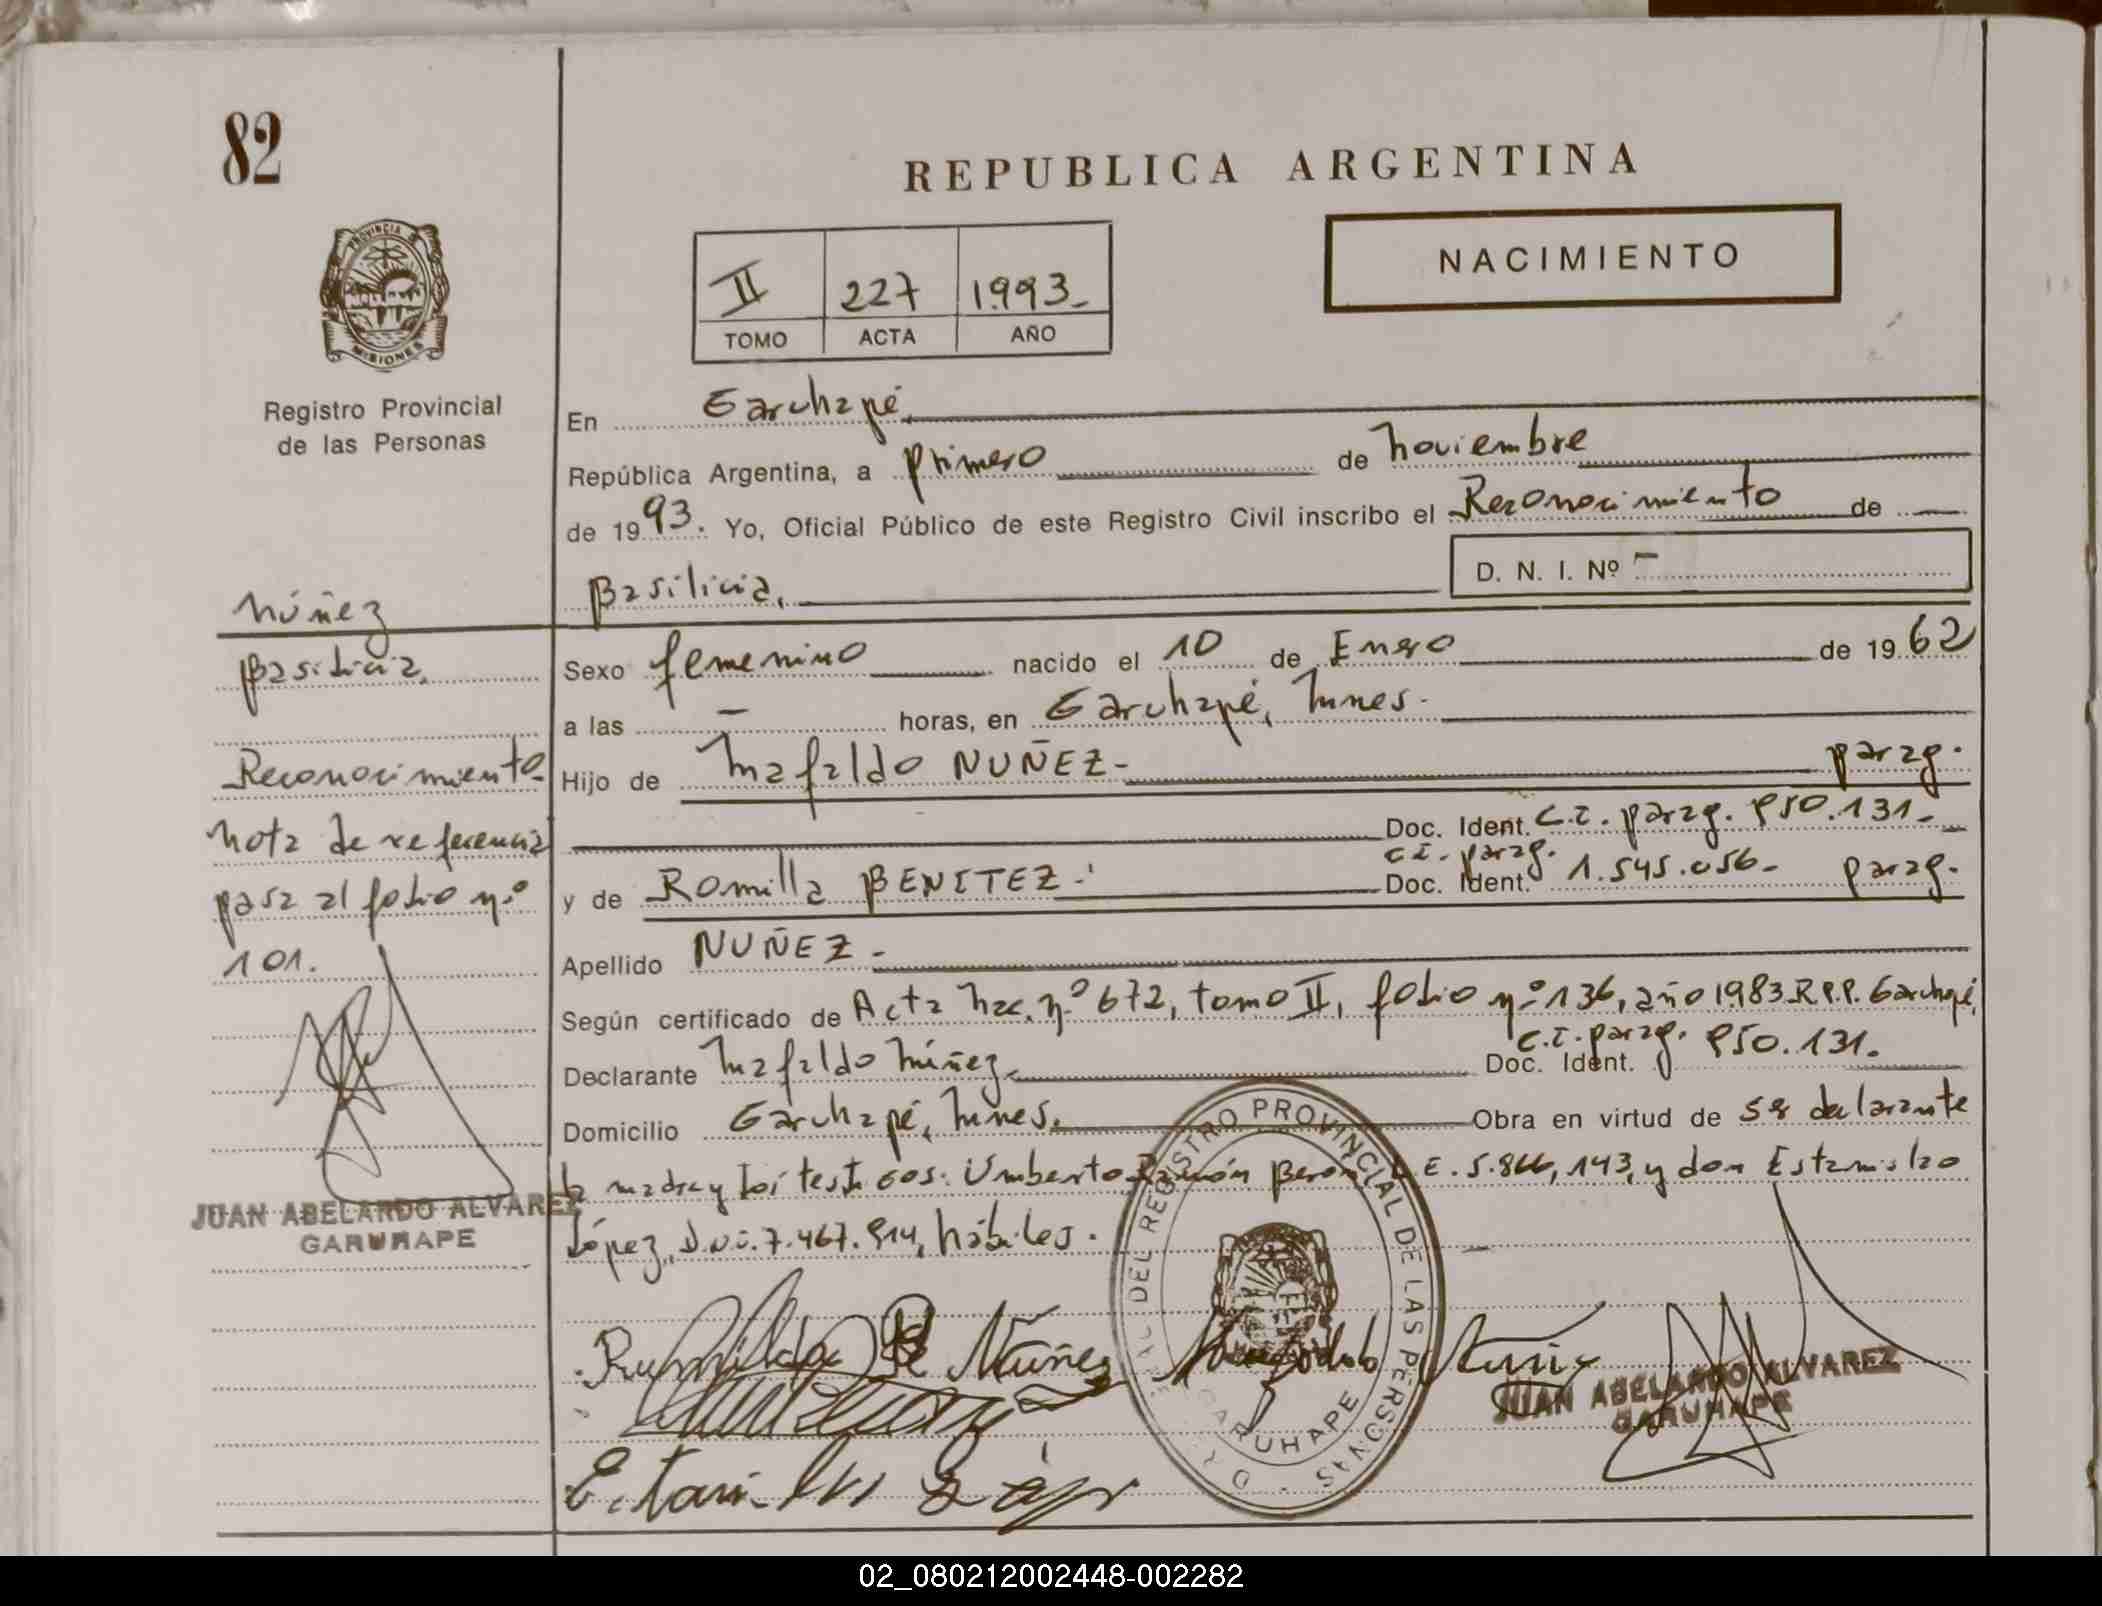 82
REPUBLICA ARGENTINA
PROVINCIA
MISIONES
II 227 1993_
TOMO ACTA AÑO
NACIMIENTO
Registro Provincial
de las Personas
En Garuhapé
República Argentina, a primero de noviembre
de 1993. Yo, Oficial Público de este Registro Civil inscribo el Reconocimiento de
Basilicia. D. N. I. Nº -
Núñez
Basilicia.
Reconocimiento
nota de referencia
pasa al folio nº
101.
JUAN ABELARDO ALVAREZ
GARUHAPE
Sexo femenino nacido el 10 de Enero de 1962
a las - horas, en Garuhapé, Mnes.
Hijo de Mafaldo NUÑEZ- parag.
Doc. Ident. C.I. parag. 950.131-
y de Romilla BENITEZ- C.I. parag. Doc. Ident. 1.545.056- parag.
Apellido NUÑEZ-
Según certificado de Acta Nac. nº 672, tomo II, folio nº 136, año 1983 R.P.P. Garuhapé,
Declarante Mafaldo Núñez. Doc. Ident. C.I. parag. 950.131.
Domicilio Garuhapé, Mnes. Obra en virtud de ser declarante
la madre y los testigos: Umberto Ramón E. y don Estanislao
López, D.N.I. 7.467.914, hábiles.
Núñez
DEL REGISTRO PROVINCIAL DE LAS PERSONAS
GARUHAPE
JUAN ABELARDO ALVAREZ
GARUHAPE
02_080212002448-002282